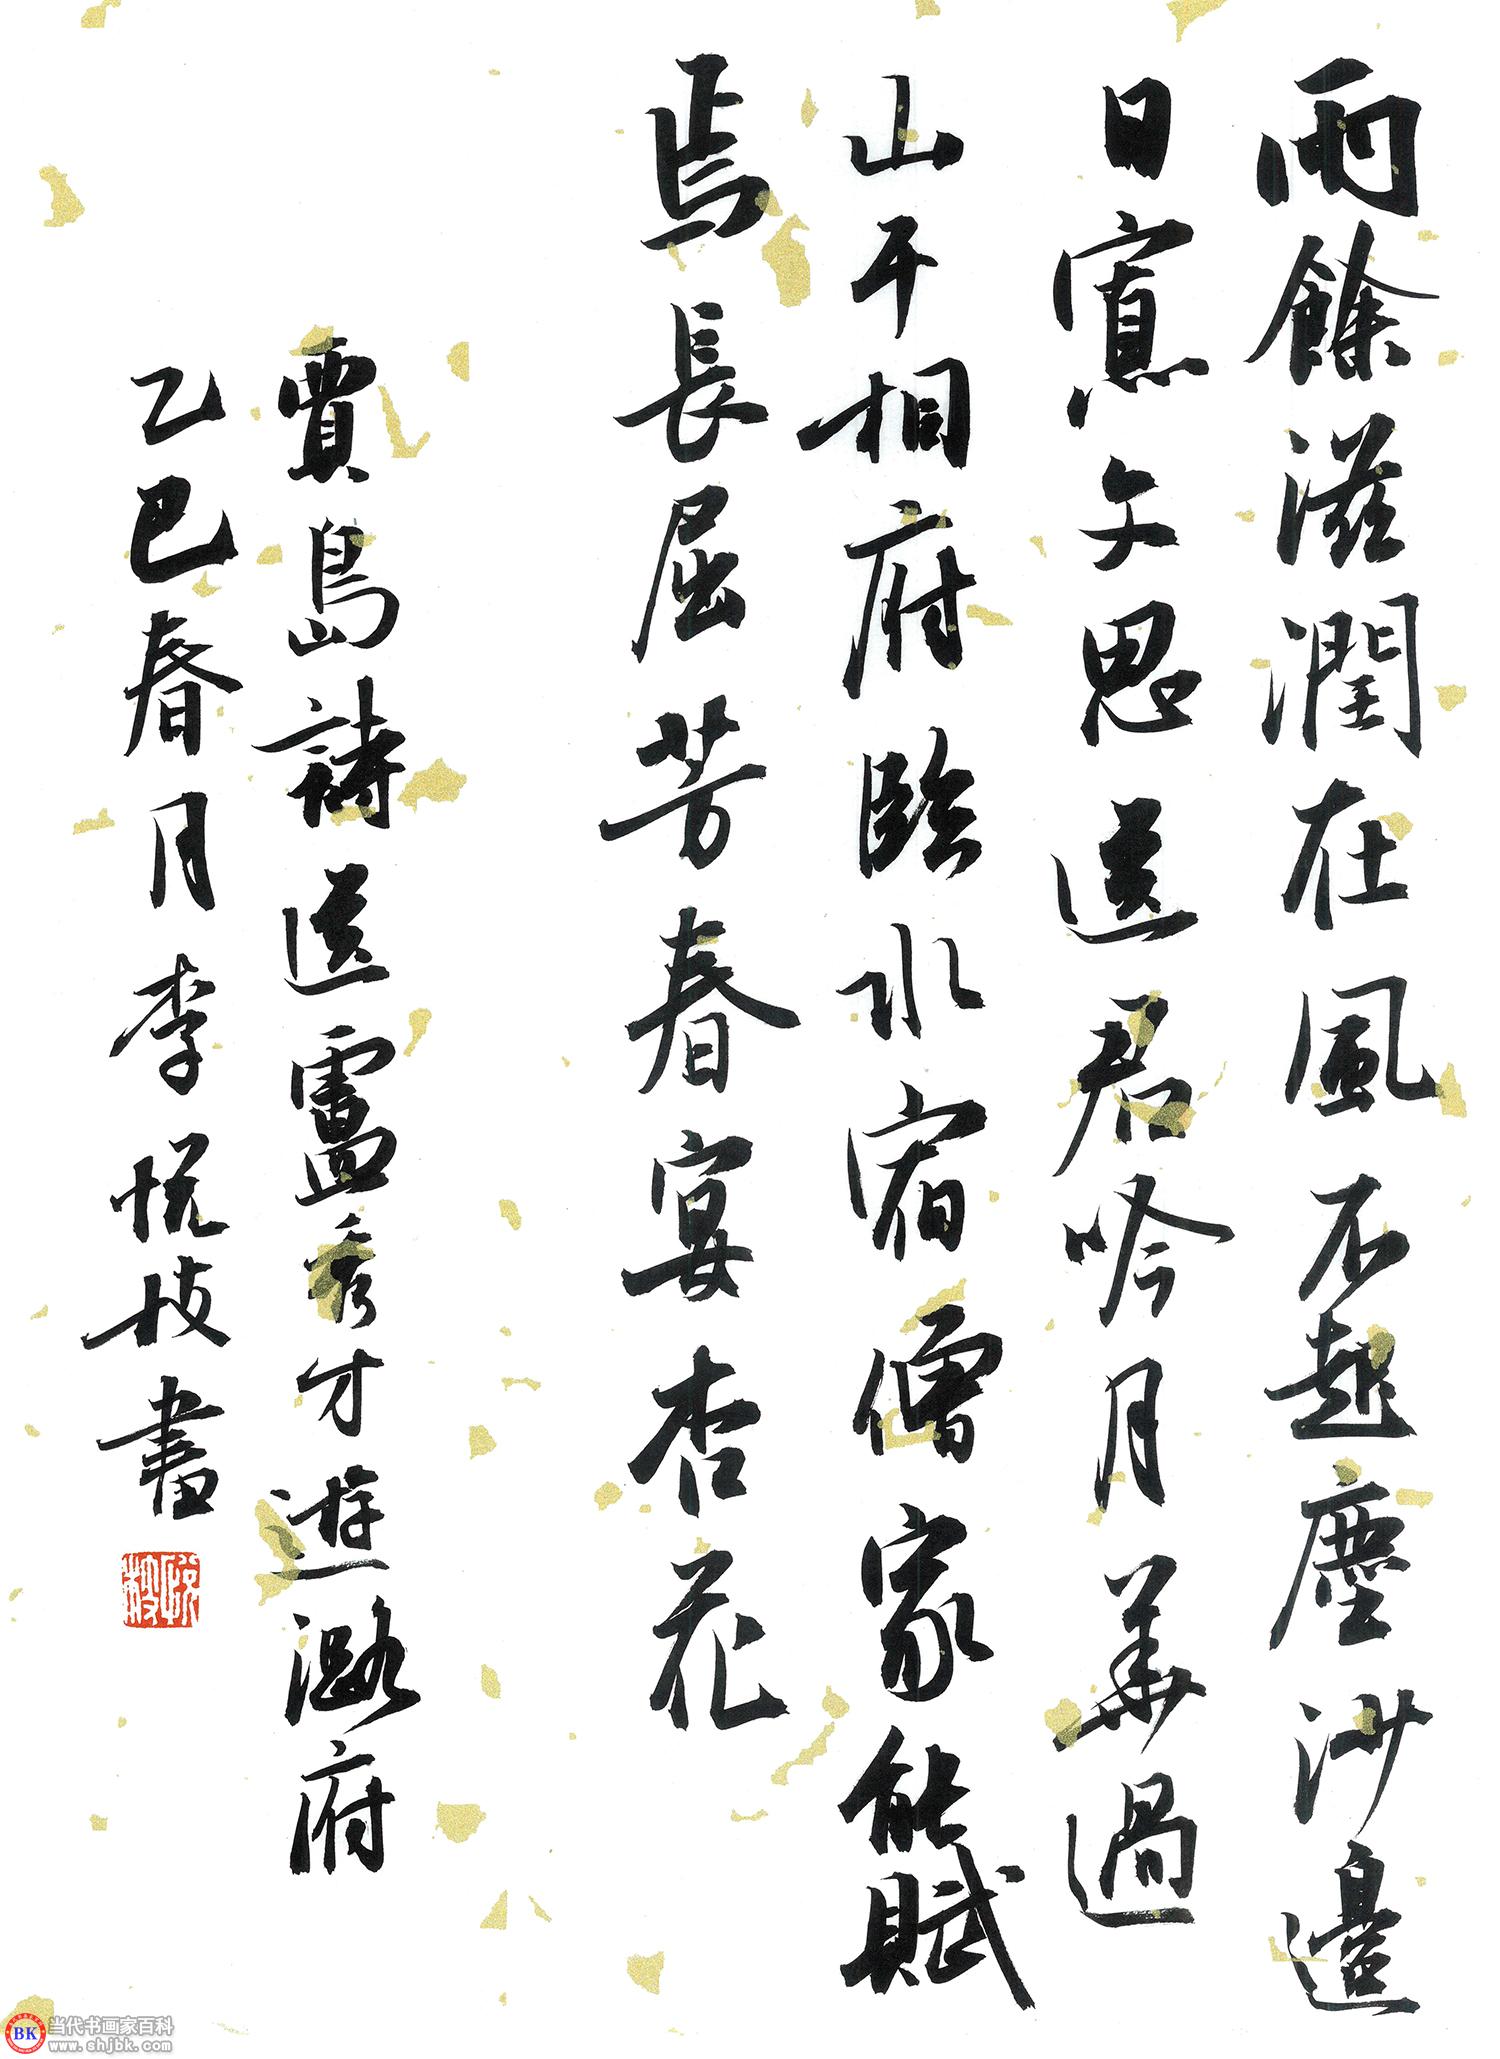 雨餘滋潤在風不起塵沙邊
日寡文思送君吟月華過
山干相府臨水宿僧家能賦
焉長屈芳春宴杏花
賈島詩送盧秀才遊潞府
乙巳春月李悦枝書
悦枝
BK 当代书画家百科
www.shjbk.com